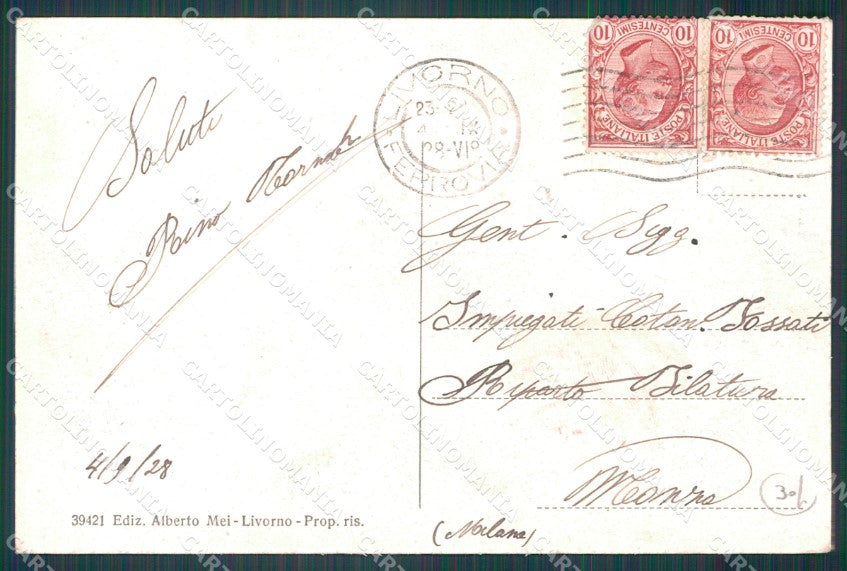 Saluti
Rino
4/9/28
39421 Ediz. Alberto Mei - Livorno - Prop. ris.
LIVORNO
FERROVIA
23-
28-VIº
10 CENTESIMI 10
POSTE ITALIANE
10 CENTESIMI 10
POSTE ITALIANE
Gent. Sigg.
Impiegati Coton. Fossati
Riparto Filatura
Monza
(Milano)
30/.
CARTOLINOMANIA